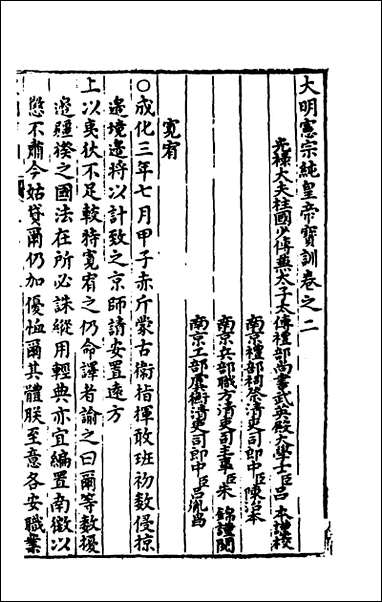 大明憲宗純皇帝寶訓卷之二
光祿大夫柱國少傅兼太子太傅禮部尚書武英殿大學士臣呂 本謹校
南京禮部祠祭清吏司郎中臣陳治本
南京兵部職方清吏司主事臣朱 錦謹閱
南京工部虞衡清吏司郎中臣呂胤昌
寬宥
○成化三年七月甲子赤斤蒙古衞指揮敢班初數侵掠
邊境邊將以計致之京師請安置遠方
上以夷狄不足較特寬宥之仍命譯者諭之曰爾等數擾
邊疆揆之國法在所必誅縱用輕典亦宜編置南徼以
懲不肅今姑貸爾仍加優恤爾其體朕至意各安職業